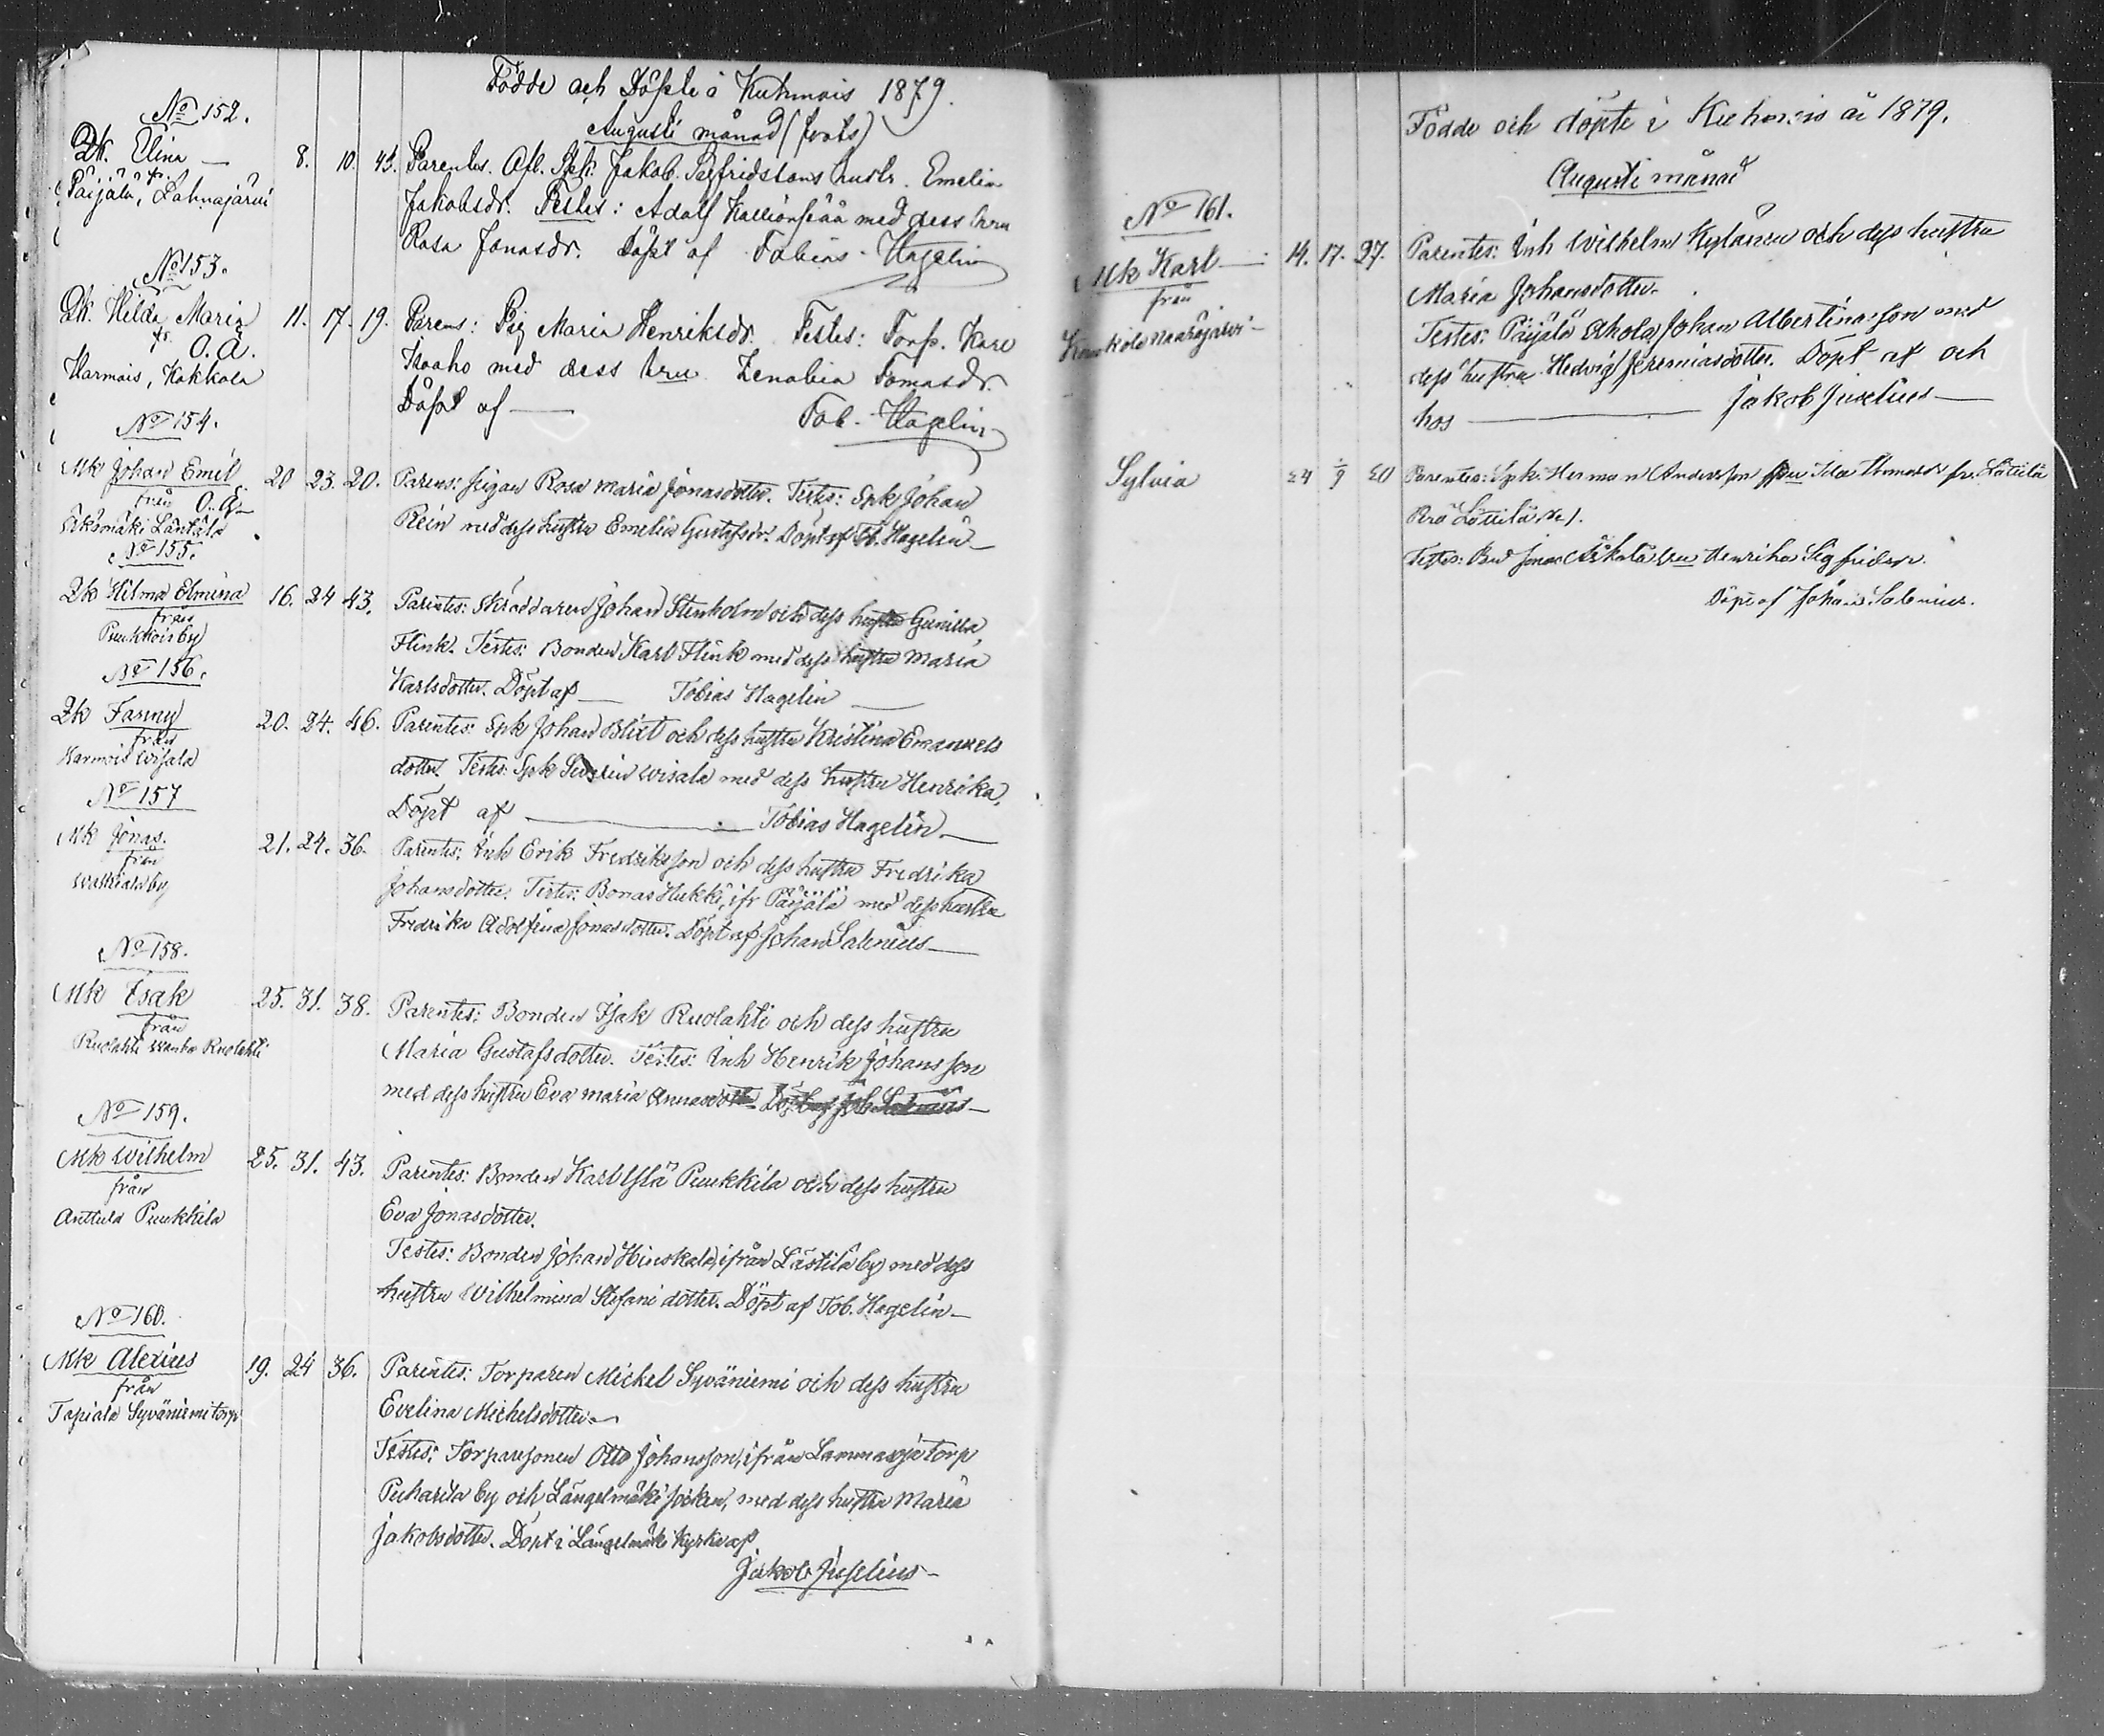 Födde och Döpte i Kuhmois 1879.
Augusti månad (forts)
No 152.
Qk. Elina —
fr.
Päijälä, Lahnajärvi
8. 10. 43. Parentes. Afl. Spk. Jakob Sigfridssons hustr. Emelia
Jakobsdr. Testes: Adolf Kallionpää med dess hru
Rosa Jonasdr. Döpt af Tobias Hagelin
No 153.
Qk. Hilda Maria
fr. O. Ä.
Harmois, Kokkola
11. 17. 19. Parens: Pig Maria Henriksdr. Testes: Torp. Karl
Isoaho med dess hru Zenobia Tomasdr.
Döpt af — Tob. Hagelin
No 154.
Mk Johan Emil
från O. Ä.
Lästilä
20 23. 20. Parens: Pigan Rosa Maria Jonasdotter. Testes: Spk Johan
Rein med dess hustru Emelia Gustafsdr. Döpt af Tb. Hagelin —
No 155.
Qk Hilma Elmina
från
Puukkois by
16. 24 43. Parentes: Skräddaren Johan Stenholm och dess hustru Gunilla
Flink. Testes: Bonden Karl Flink med dess hustru Maria
Karlsdotter. Döpt af — Tobias Hagelin —
No 156.
Qk Fanny
från
Harmois Wisala
20. 24. 46. Parentes: Spk Johan Blixt och dess hustru Kristina Emanuels
dotter. Testes: Spk Severin Wisala med dess hustru Henrika.
Döpt af — Tobias Hagelin. —
No 157
Mk Jonas.
från
by
21. 24. 36. Parentes: Inh Erik Fredriksson och dess hustru Fredrika
Johansdotter. Testes: Hukki, ifr Päijälä med dess hustru
Fredrika Adolfina Jonasdotter. Döpt af Johan Salenius —
No 158.
Mk Isak
från
Ruolahti Wanha Ruolahti
25. 31. 38. Parentes: Bonden Isak Ruolahti och dess hustru
Maria Gustafsdotter. Testes: Inh Henrik Johansson
med dess hustru Eva Maria Annasdotter Döpt af Joh. Salenius —
No 159.
Mk Wilhelm
från
Anttula Puukkila
25. 31. 43. Parentes: Bonden Karl Ylä Puukkila och dess hustru
Eva Jonasdotter.
Testes: Bonden Johan ifrån Lästilä by med dess
hustru Wilhelmina Stefani dotter. Döpt af Tob. Hagelin —
No 160.
Mk Alexius
från
Tapiala Syväniemi torp
19. 24 36. Parentes: Torparen Mickel Syväniemi och dess hustru
Evelina Mickelsdotter.
Testes: Torparesonen Otto Johansson, ifrån torp
Puharila by och Längelmäki socken, med dess hustru Maria
Jakobsdotter. Döpt i Längelmäki kyrka af
Jakob Juselius —
Födde och döpte i Kuhmois år 1879.
Augusti månad
No 161.
Mk Karl —
från
14. 17. 27. Parentes: Inh Wilhelm Kylänen och dess hustru
Maria Johansdotter.
Testes: Päijälä Johan Albertinasson med
dess hustru Hedvig Jeremiasdotter. Döpt af och
hos — Jakob Juselius —
Sylvia
24 1/9 20 Parentes: Spk. Herman Andersson hru Ida Thomasdr fr. Lästilä
Lästilä No 1.
Testes: Bnd Jonas hru Henrika Sigfridsdr.
Döpt af Johan Salenius.